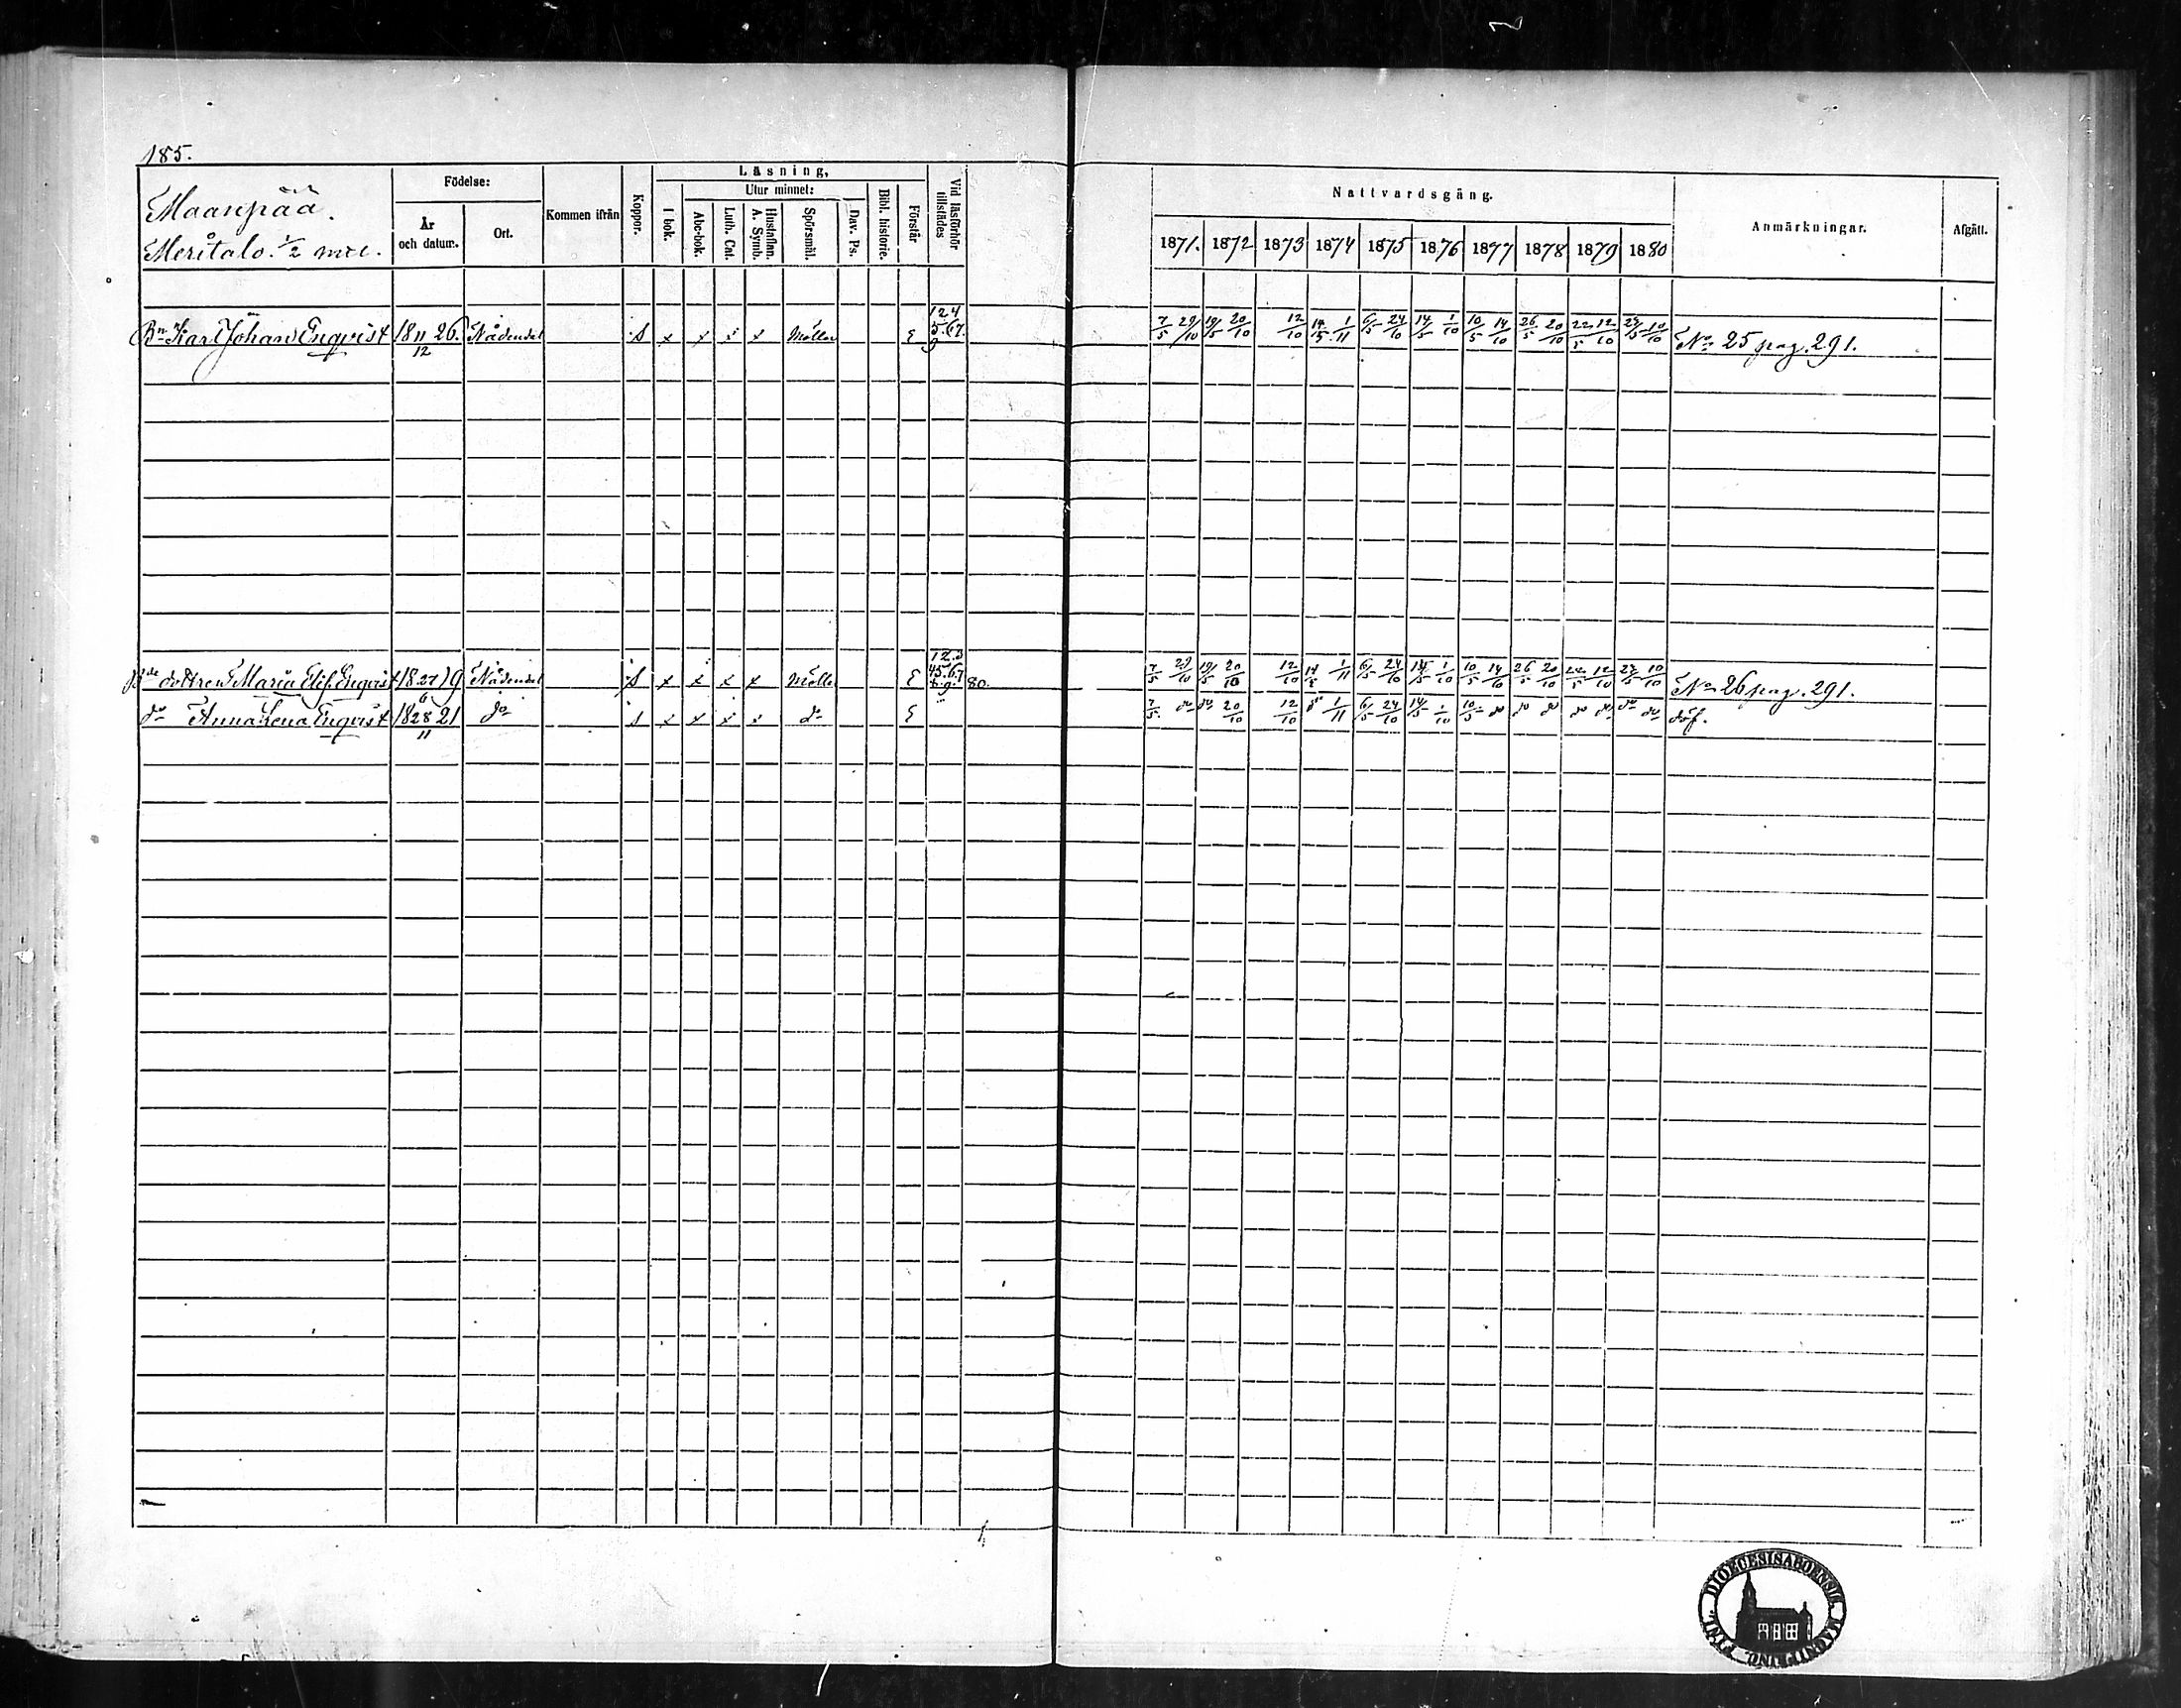 185.
Maanpää.
Meritalo. 1/2 mtl.
Födelse:
År och datum.
Ort.
Kommen ifrån
Koppor.
Läsning,
I bok.
Utur minnet:
Abc-bok.
Luth. Cat.
Hustaflan. A. Symb.
Spörsmål.
Dav. Ps.
Bibl. historie.
Förstår
Vid läsförhör tillstädes
Nattvardsgång.
1871. 1872 1873 1874 1875 1876 1877 1878 1879 1880
Anmärkningar.
Afgått.
Bn Karl Johan Enqvist 1811 26/12 Nådendal s x x x x Möller E 124 5.67. 9 7/5 29/10 19/5 20/10 12/10 14/5 1/11 6/5 24/10 14/5 1/10 10/5 14/10 26/5 20/10 22/5 12/10 23/5 10/10 No 25 pag. 291.
Bde dottren Maria Elis. Enqvist 1827 19/6 Nådendal s x x x x Möller E 123 45.67 8.9. 80. 7/5 29/10 19/5 20/10 12/10 14/5 1/11 6/5 24/10 14/5 1/10 10/5 14/10 26/5 20/10 22/5 12/10 23/5 10/10 No 26 pag. 291.
do Anna Lena Enqvist 1828 21/11 do s x x x x do E 7/5 do do 20/10 12/10 do 1/11 6/5 24/10 14/5 1/10 10/5 do do do do do do do döf.
DIOECESIS ABOENSIS MAGNI PRINC. FINL.